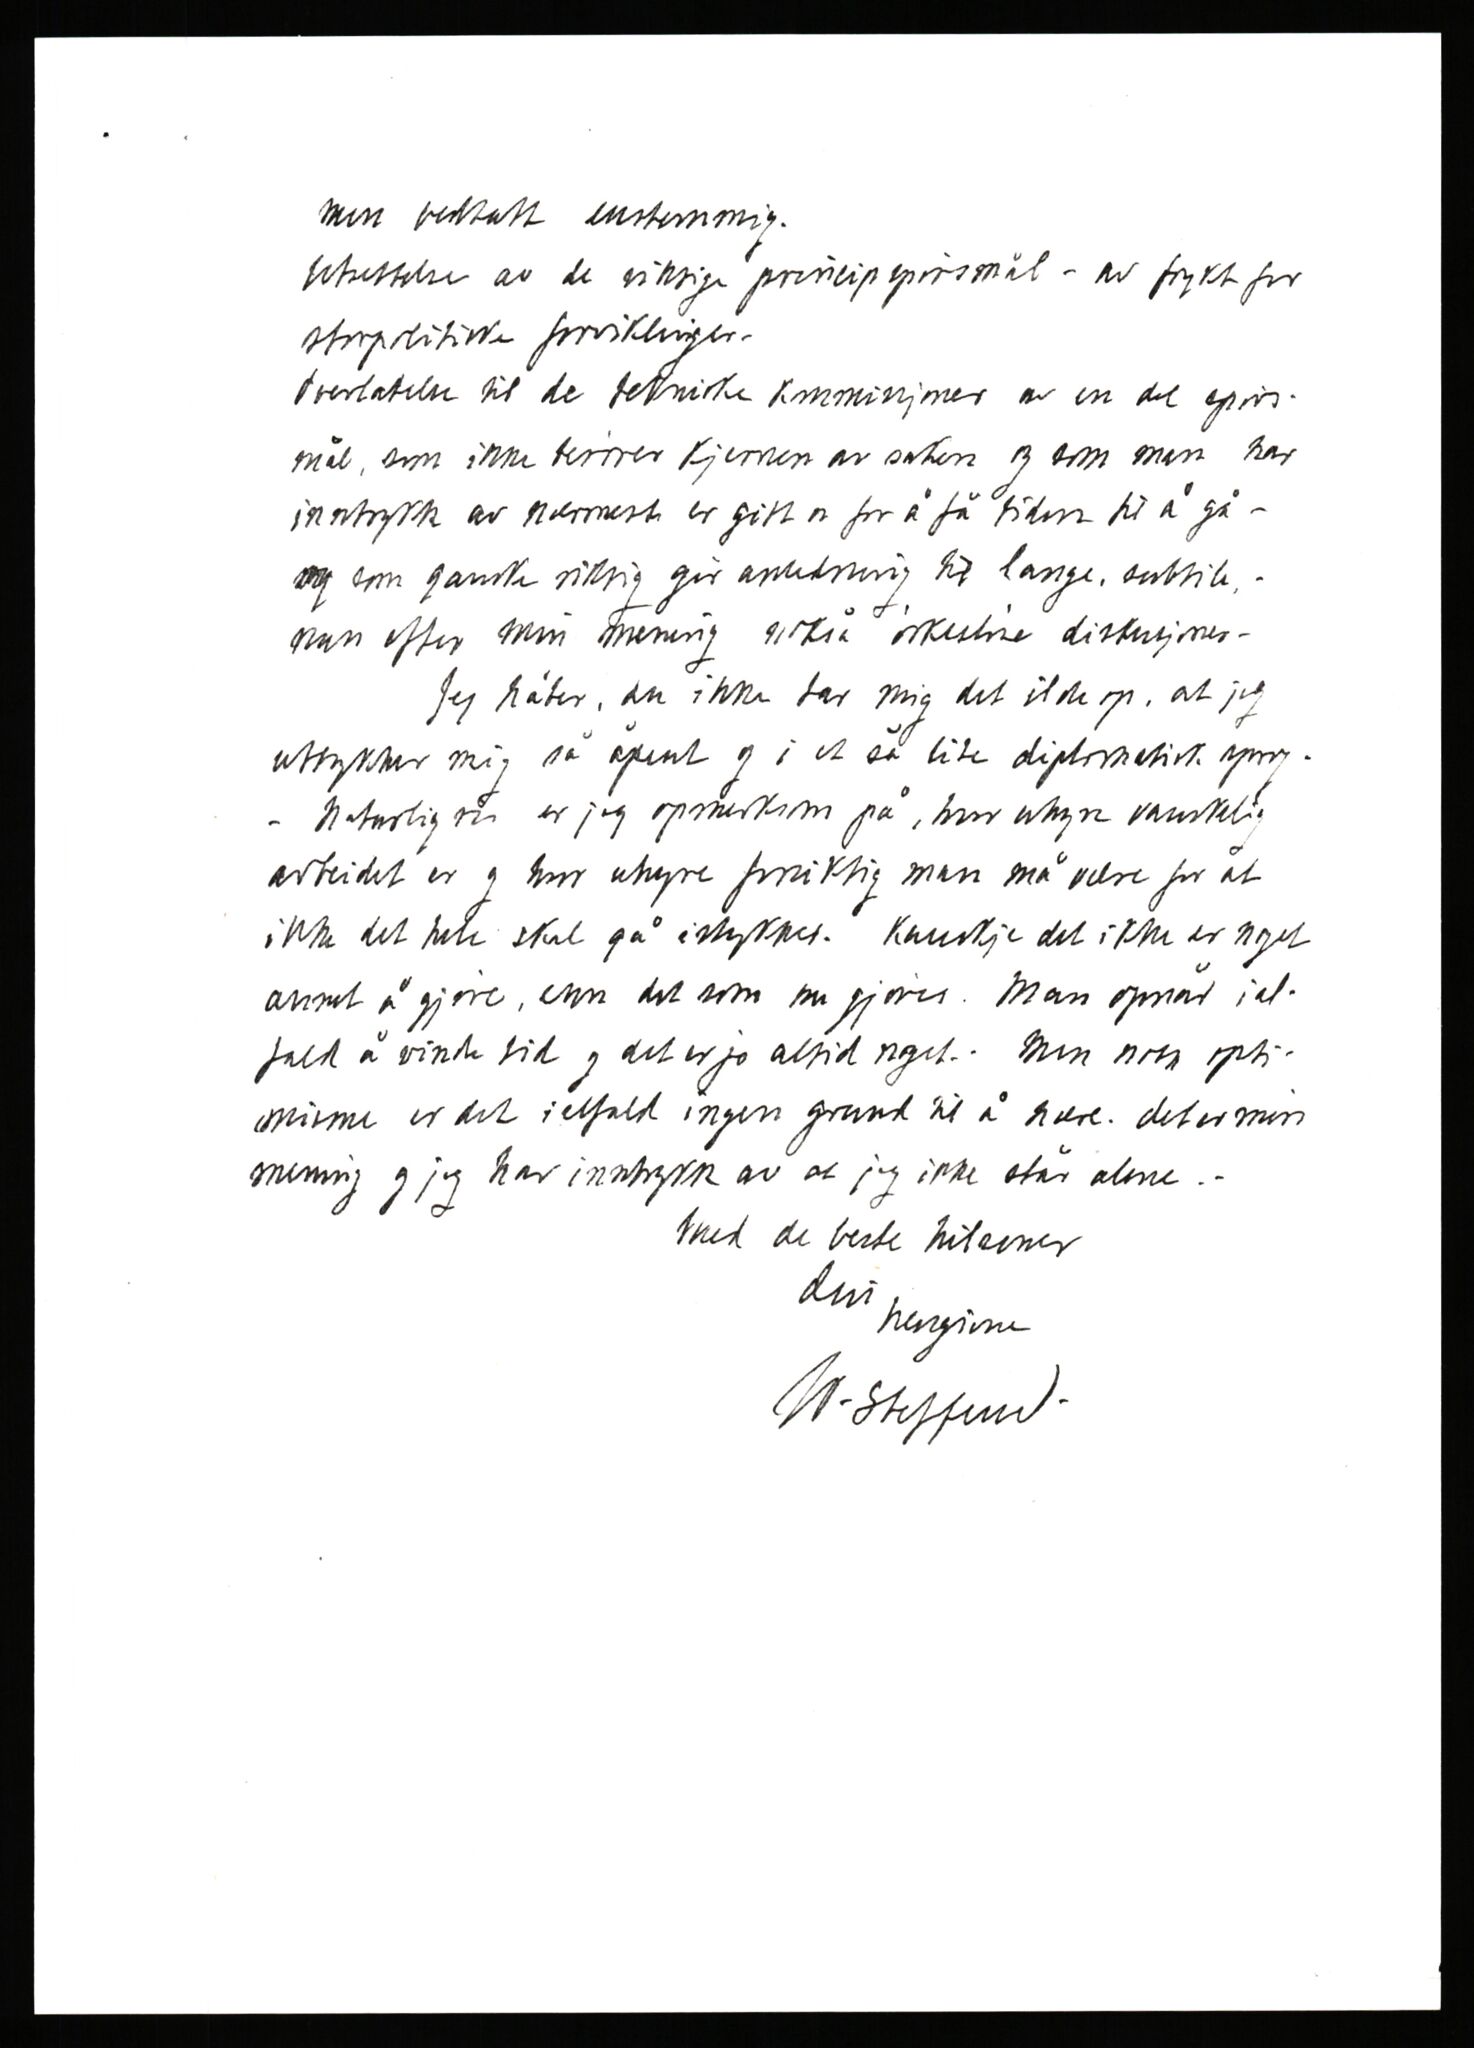 men vedtatt enstemmig.
Utsettelse av de viktige principspørsmål - av frykt for
storpolitiske forviklinger -
Overlatelse til de tekniske kommisjoner av en del spørs-
mål, som ikke berører kjernen av saken og som man har
inntrykk av nærmest er gitt for å få tiden til å gå -
og som ganske riktig gir anledning til lange, subtile, -
men efter min mening også ørkesløse diskusjoner -
Jeg håber, du ikke tar mig det ilde op, at jeg
uttrykker mig så åpent og i et så lite diplomatisk sprog -
- Naturligvis er jeg opmerksom på, hvor uhyre vanskelig
arbeidet er og hvor uhyre forsiktig man må være for at
ikke det hele skal gå istykker. Kanskje det ikke er noget
annet å gjøre, enn det som nu gjøres. Man opnår ial-
fald å vinde tid og det er jo altid noget. - Men noen opti-
misme er det ialfald ingen grund til å nære. Det er min
mening og jeg har inntrykk av at jeg ikke står alene. -
Med de beste hilsener
din
hengivne
W. Steffens